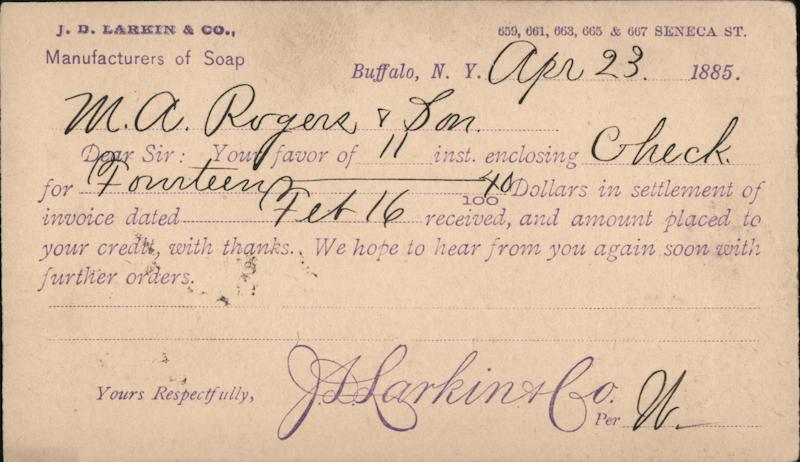 J. D. LARKIN & CO., 659, 661, 663, 665 & 667 SENECA ST.
Manufacturers of Soap
Buffalo, N. Y. Apr 23. 1885.
M. A. Rogers & Son.
Dear Sir: Your favor of 11 inst. enclosing Check.
for Fourteen 40/100 Dollars in settlement of
invoice dated Feb 16 received, and amount placed to
your credit, with thanks. We hope to hear from you again soon with
further orders.
Yours Respectfully, J. D. Larkin & Co.
Per W.